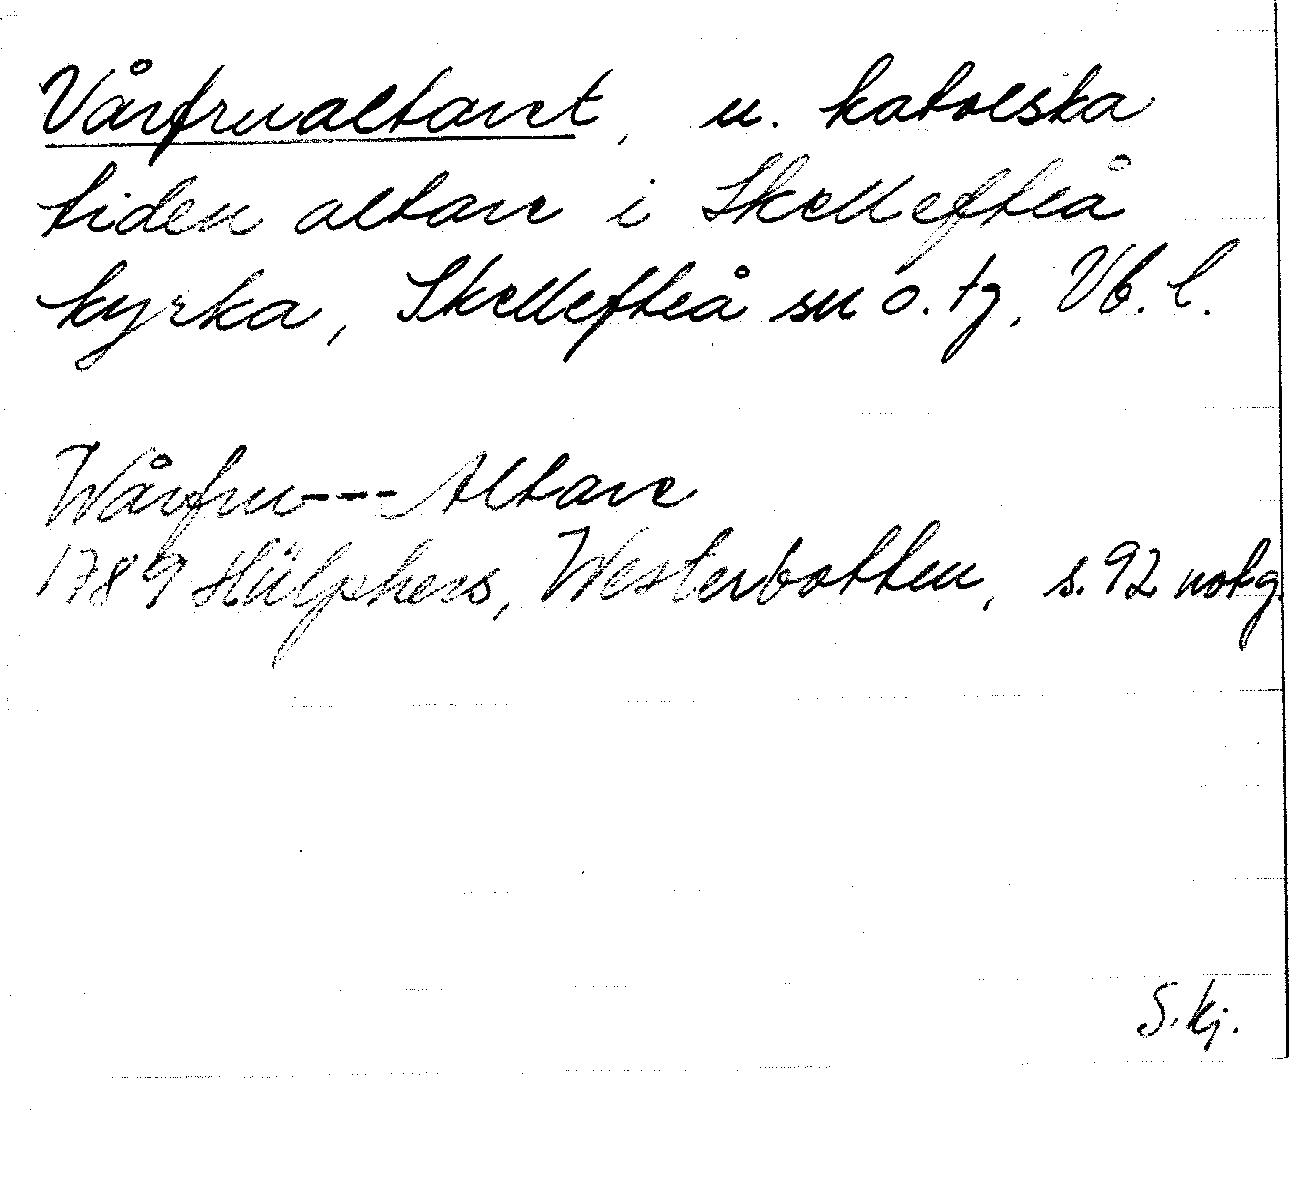 Vårfrualtaret, u. katolska
tiden altare i Skellefteå
kyrka, Skellefteå sn o. tg, Vb. l.
Wårfru---Altare
1789 Hülphers, Westerbotten, s. 92 not g.
S. kj.